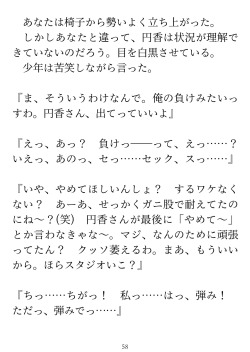 あなたは椅子から勢いよく立ち上がった。
　しかしあなたと違って、円香は状況が理解で
きていないのだろう。目を白黒させている。
　少年は苦笑しながら言った。
『ま、そういうわけなんで。俺の負けみたいっ
すわ。円香さん、出てっていいよ』
『えっ、あっ？　負けっ――って、えっ……？
いえっ、あのっ、せっ……セック、スっ……』
『いや、やめてほしいんしょ？　するワケなく
ない？　あーあ、せっかくガニ股で耐えてたの
にね～？(笑)　円香さんが最後に「やめて～」
とか言わなきゃな～。マジ、なんのために頑張
ってたん？　クッソ萎えるわ。まあ、もういい
から。ほらスタジオいこ？』
『ちっ……ちがっ！　私っ……はっ、弾み！
ただっ、弾みでっ……』
58